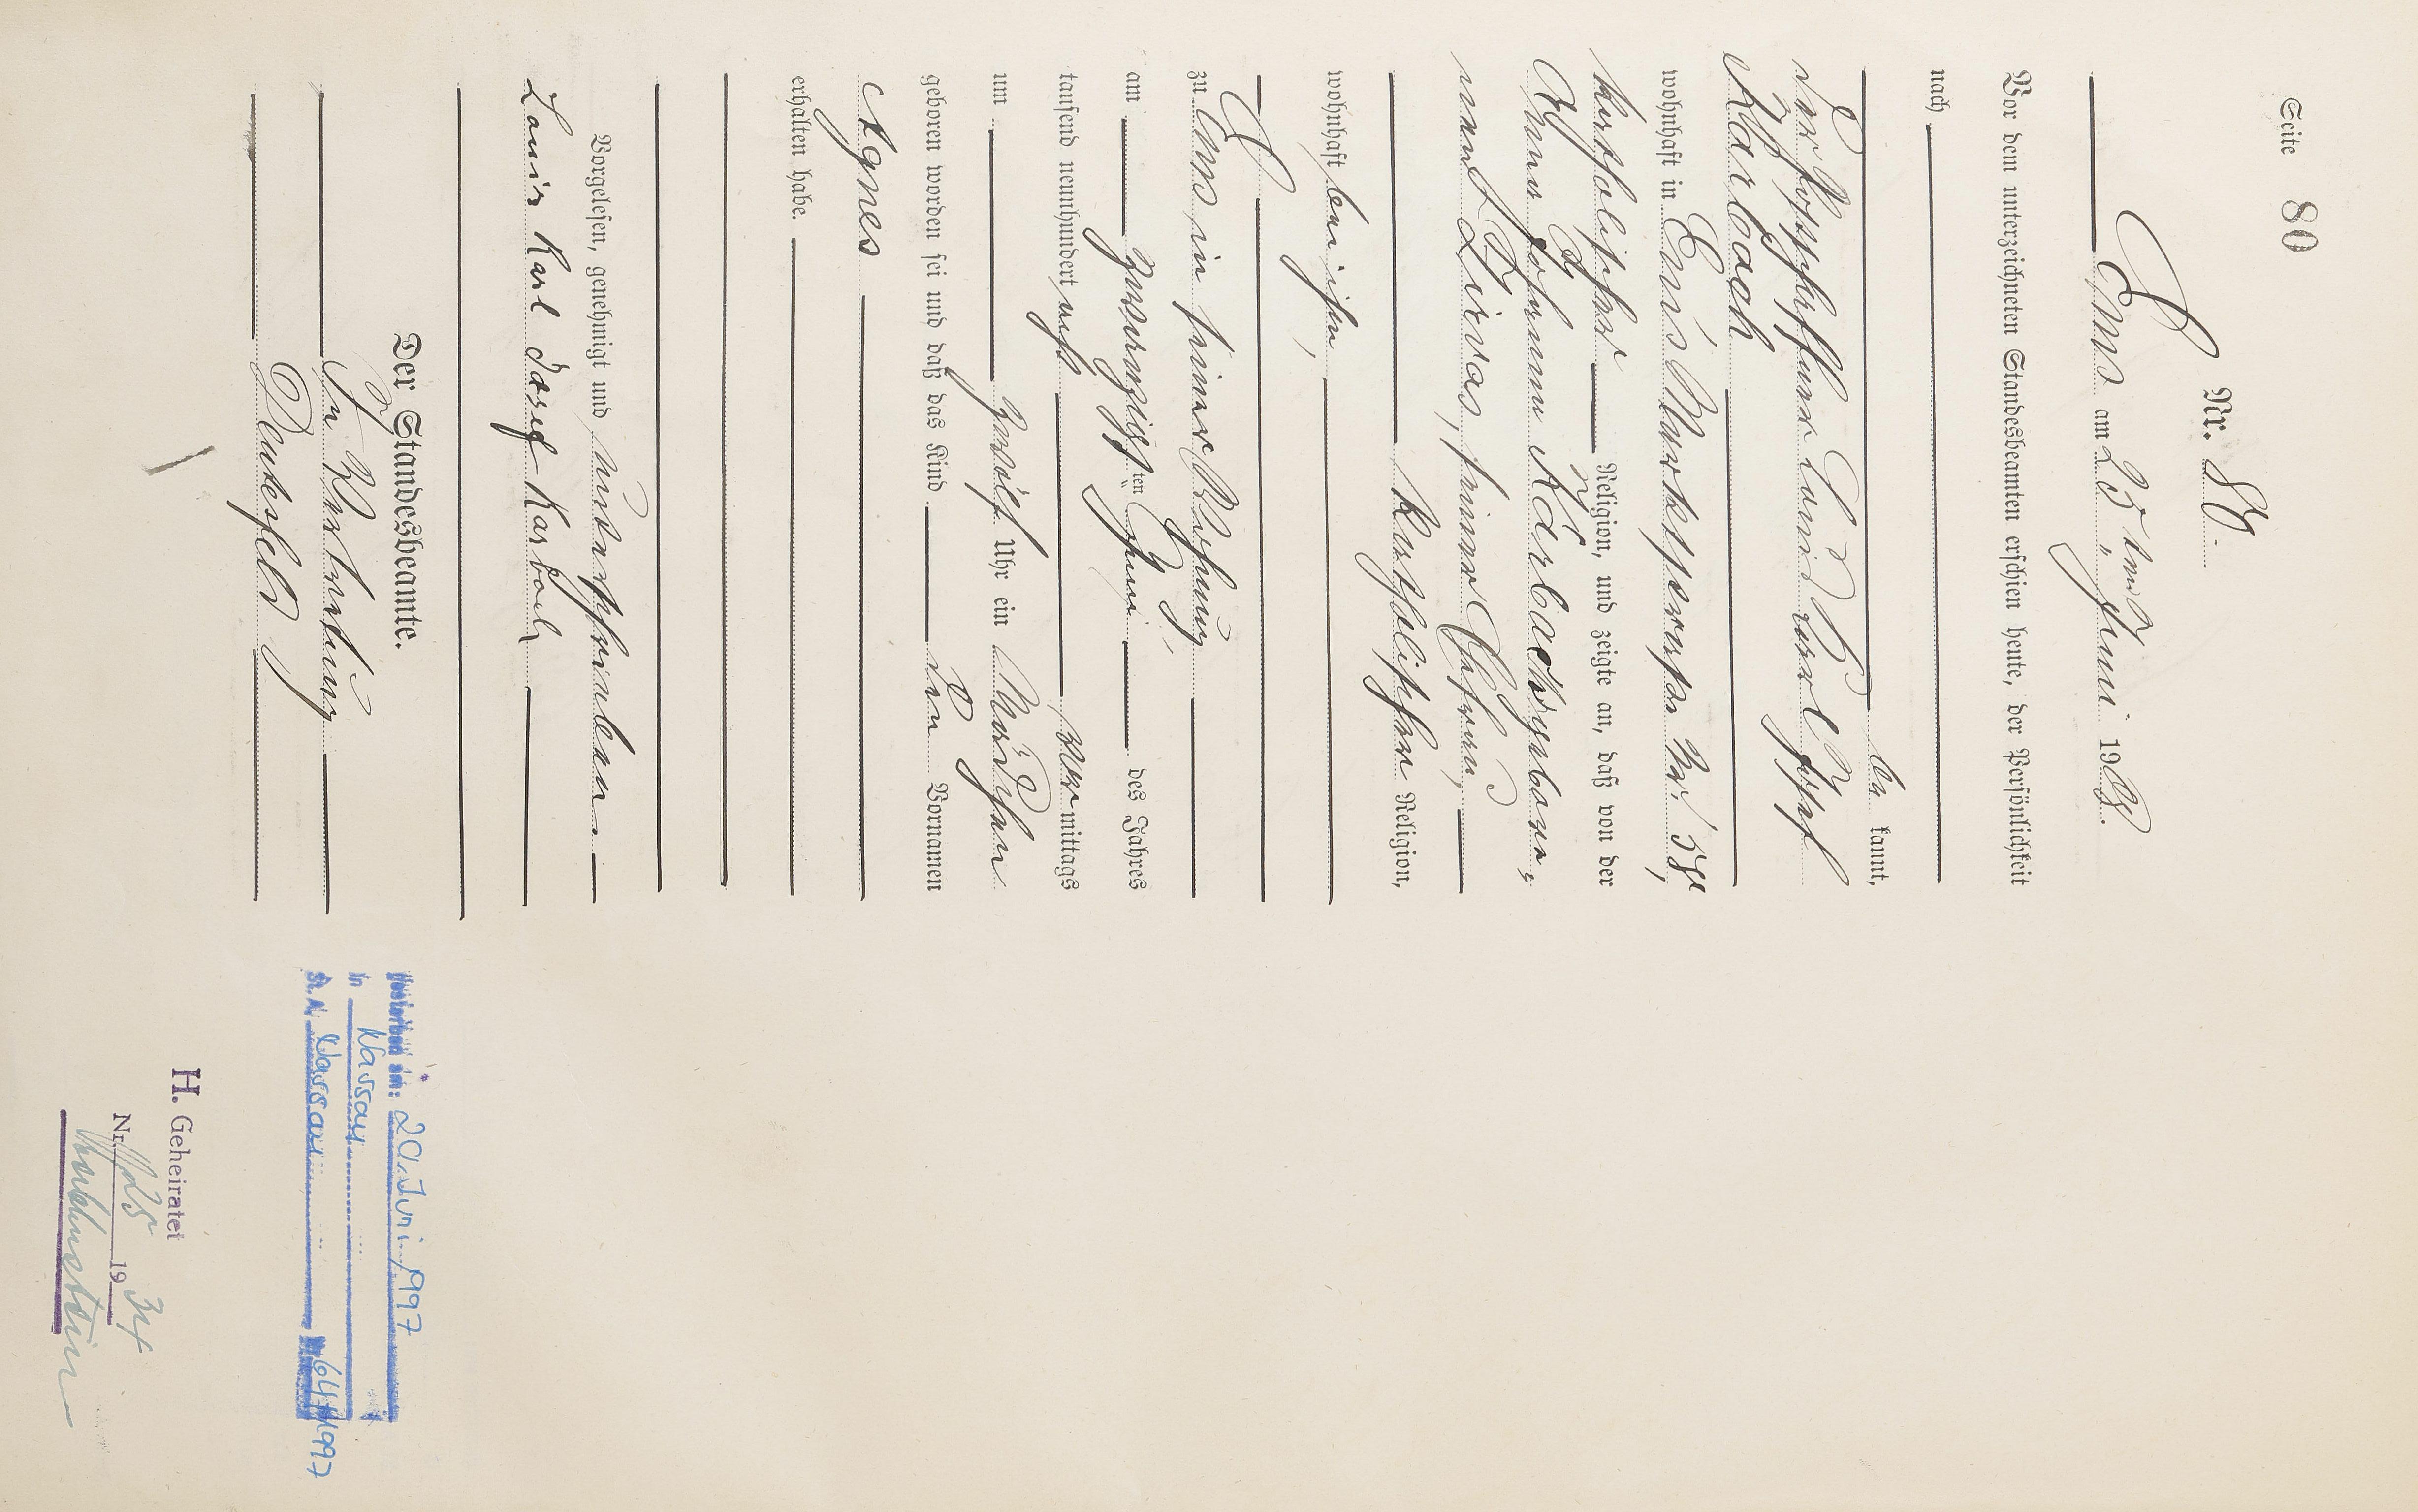 Seite 80
Nr. 80.
Ems am 25ten Juni 1908.
Vor dem unterzeichneten Standesbeamten erschien heute, der Persönlichkeit
nach
be kannt,
der Postschaffner Louis Karl Josef
Karbach
wohnhaft in Ems Marktstraße Nr. 58,
katholischer Religion, und zeigte an, daß von der
Anna Johanna Karbach geborene,
seiner Ehefrau,
katholischer Religion,
wohnhaft bei ihm,
zu Ems in seiner Wohnung,
am zwanzigsten Juni des Jahres
tausend neunhundert acht vormittags
um zwölf Uhr ein Mädchen
geboren worden sei und daß das Kind den Vornamen
Agnes
erhalten habe.
Vorgelesen, genehmigt und unterschrieben
Louis Karl Josef Karbach
Der Standesbeamte.
In Vertretung
Verstorben am: 20. Juni 1997
in Nassau
St. A. Nassau Nr. 64/1997
H. Geheiratet
Nr. 25 1934